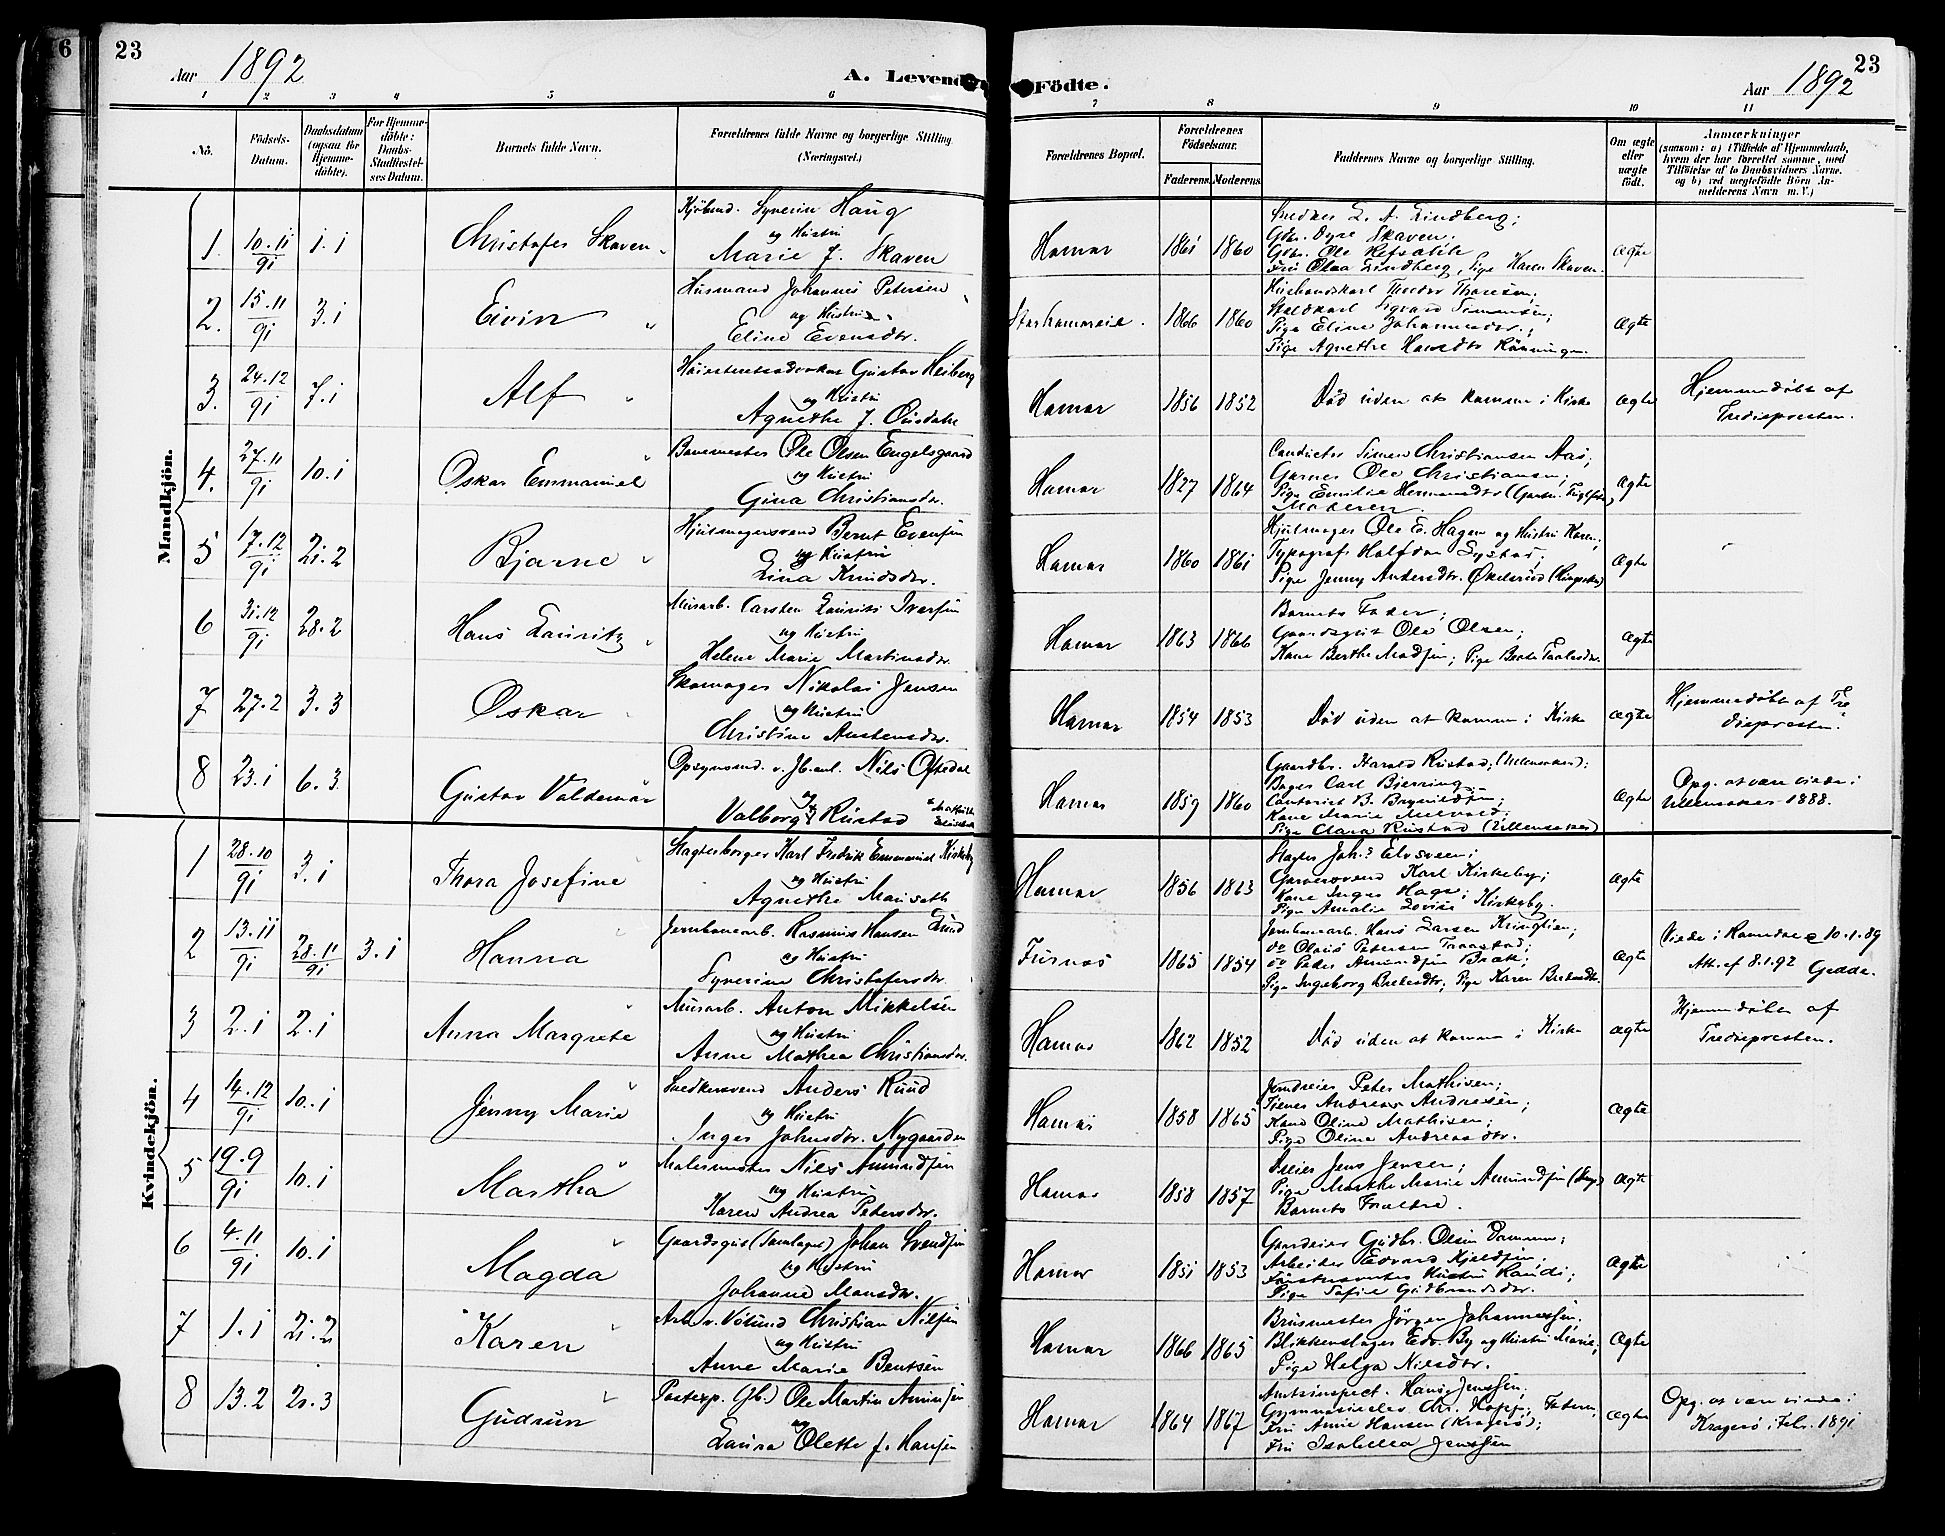 6
23
Aar 1892
A. Levende
1 2 3 4 5 6
No.
Födsels-
Datum.
Daabsdatum
(ogsaa for
Hjemme-
döbte).
For Hjemme-
döbte:
Daabs-
Stadfæstel-
ses Datum.
Barnets fulde Navn.
Forældrenes fulde Navne og borgerlige Stilling
(Næringsvei.)
Mandkjön.
1. 10.11/91 1.1 Christofer Skaven
Kjöbmd. Syverin Haug
og Hustru
Marie f. Skaven
2. 15.11/91 3.1 Eivin
Husmand Johannes Petersen
og Hustru
Eline Evensdtr.
3. 24.12/91 7.1 Alf
Höiesteretsadvokat Gustav Heiberg
og Hustru
Agnethe f.
4. 27.11/91 10.1 Oskar Emmanuel
Banemester Ole Olsen Engelsgaard
og Hustru
Gina Christiansdtr.
5 17.12/91 21.2 Bjarne
Hjulmagersvend Bernt Evensen
og Hustru
Lina Knudsdtr.
6 31.12/91 28.2 Hans Lauritz
Murarb. Carsten Laurits Iversen
og Hustru
Helene Marie Martinsdtr.
7 27.2 3.3 Oskar
Skomager Nikolai Jensen
og Hustru
Christine Austensdtr.
8 23.1 6.3 Gustav Valdemar
Opsynsmd. v. Jb.anl. Nils Oftedal
og
Valborg Rustad
Kvindekjön.
1 28.10/91 3.1 Thora Josefine
Slagterborger Karl Fredrik Emmanuel Kirkeby
og Hustru
Agnethe Mauseth
2 13.11/91 28.11/91 3.1 Hanna
Jernbanearb. Rasmus Hansen Lund
og Hustru
Syverine Christofersdtr.
3 2.1 2.1 Anna Margrete
Murarb. Anton Mikkelsen
og Hustru
Anne Mathea Christiansdtr.
4 14.12/91 10.1 Jenny Marie
Snedkersvend Anders Ruud
og Hustru
Inger Johnsdtr. Nygaarden
5 19.9/91 10.1 Martha
Malermester Nils Amundsen
og Hustru
Karen Andrea Petersdtr.
6 4.11/91 10.1 Magda
Gaardsgut (Samlaget) Johan Svendsen
og Hustru
Johanne Monsdtr.
7 1.1 21.2 Karen
Arb. v. Völund Christian Nilsen
og Hustru
Anne Marie Bentsen
8 13.2 20.3 Gudrun
Postexp. (Jb.) Ole Martin Amundsen
og
Laura Olette f. Hansen
23
Födte.
Aar 1892
7 8 9 10 11
Forældrenes Bopæl.
Forældrenes
Födselsaar.
Faderens. Moderens.
Faddernes Navne og borgerlige Stilling.
Om ægte
eller
uægte
födt.
Anmærkninger
(saasom: a) i Tilfælde af Hjemmedaab,
hvem der har forrettet samme, med
Tilföielse af to Daabsvidners Navne.
og b) ved uægtefödte Börn An-
melderens Navn m. V.)
Hamar 1861 1860
Snedker L. A. Lindberg;
Gbr. Dyre Skaven.
Gbr. Ole
Fru Olea Lindberg, Pige Karen Skaven.
Ægte
Storhamareie. 1866 1860
Husbondskarl Theodor Thoresen;
Staldkarl Sigvard Simensen;
Pige Eline Johannesdtr.;
Pige Agnethe Hansdtr Rönningen.
Ægte
Hamar 1856 1852 Död uden at komme i Kirke Ægte
Hjemmedöbt af
Tredjepresten.
Hamar 1827 1864
Conductör Simen Christiansen Aas;
Garver Ole Christiansen;
Pige Emilie Hermansdtr
Moderen.
Ægte
Hamar 1860 1861
Hjulmager Ole E. Hagen og Hustru Karen;
Typograf Halfdan Systad;
Pige Jenny Andersdtr. Ökelsrud (Ringsaker)
Ægte
Hamar 1863 1866
Barnets Fader;
Gaardsgut Ole Olsen;
Kone Berthe Madsen; Pige Berte Paalsdtr.
Ægte
Hamar 1854 1853 Död uden at komme i Kirke Ægte
Hjemmedöbt af Tre
diepresten.
Hamar 1859 1860
Gaardbr. Harald Rustad; (Ullensaker);
Bager Carl Bjerring
Contorist B. Brynildsen;
Kone Marie
Pige Clara Rustad (Ullensaker)
Ægte
Opg. at være viede i
Ullensaker 1888.
Hamar 1856 1863
Slagter Johs Elvsveen;
Garversvend Karl Kirkeby;
Kone Inger Hage;
Pige Amalie Lovise Kirkeby.
Ægte
Furnes 1865 1854
Jernbanearb. Hans Larsen Kringlien;
do Olaus Petersen
do Peder Amundsen Brath;
Pige Ingeborg
Ægte
Viede i Romedal 10.1.89
Att. af 8.1.92 Gedde.
Hamar 1862 1852 Död uden at komme i Kirke Ægte
Hjemmedöbt af
Tredjepresten.
Hamar 1858 1865
Jerndreier Peter Mathisen;
Tjener Andreas Andresen;
Kone Oline Mathisen;
Pige Oline Andreasdtr.
Ægte
Hamar 1858 1857
Dreier Jens Jensen;
Pige Marthe Marie Amundsen
Barnets Forældre.
Ægte
Hamar 1851 1853
Gaardeier Gudbr. Olsen
Arbeider Edvard Kjeldsen
Hustru Randi;
Pige Sofie Gudbrandsdtr.
Ægte
Hamar 1866 1865
Brusmester Jörgen Johannessen,
Blikkenslager Edv. By og Hustru Marie,
Pige Helga Nilsdtr.
Ægte
Hamar 1864 1867
Amtsinspect. Hans Jenssen;
Chr. Hopp; Faderen,
Fru Anne Hansen (Kragerö);
Fru Isabella Jenssen
Ægte
Opg. at være viede i
Kragerö i Febr. 1891